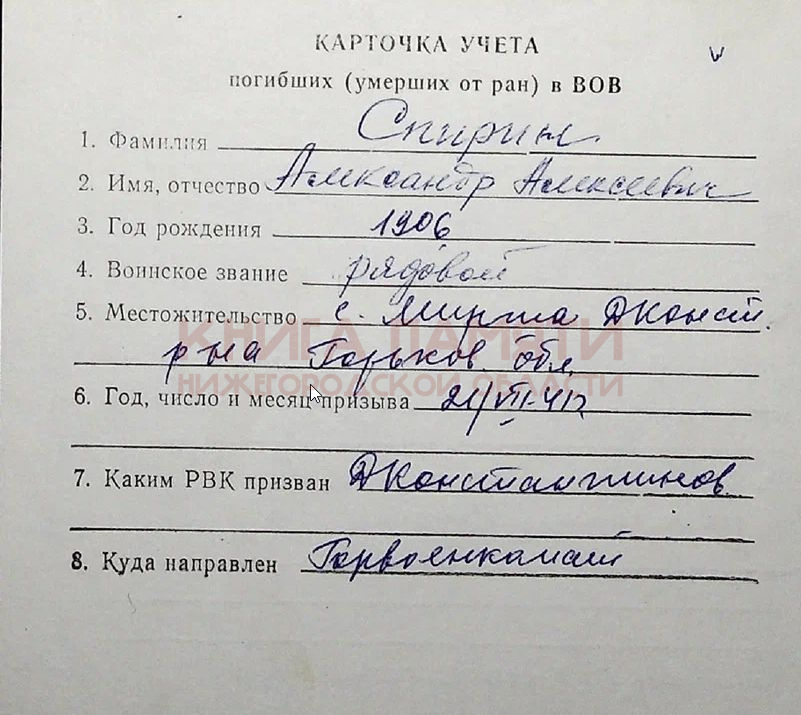 КАРТОЧКА УЧЕТА
погибших (умерших от ран) в ВОВ
1. Фамилия Спирин
2. Имя, отчество Александр Алексеевич
3. Год рождения 1906
4. Воинское звание рядовой
5. Местожительство с. Мирта ДКонст.
р на Горьков. обл.
КНИГА ПАМЯТИ
НИЖЕГОРОДСКОЙ ОБЛАСТИ
6. Год, число и месяц призыва 21/VII-41г
7. Каким РВК призван ДКонстантинов
8. Куда направлен Горвоенкомат